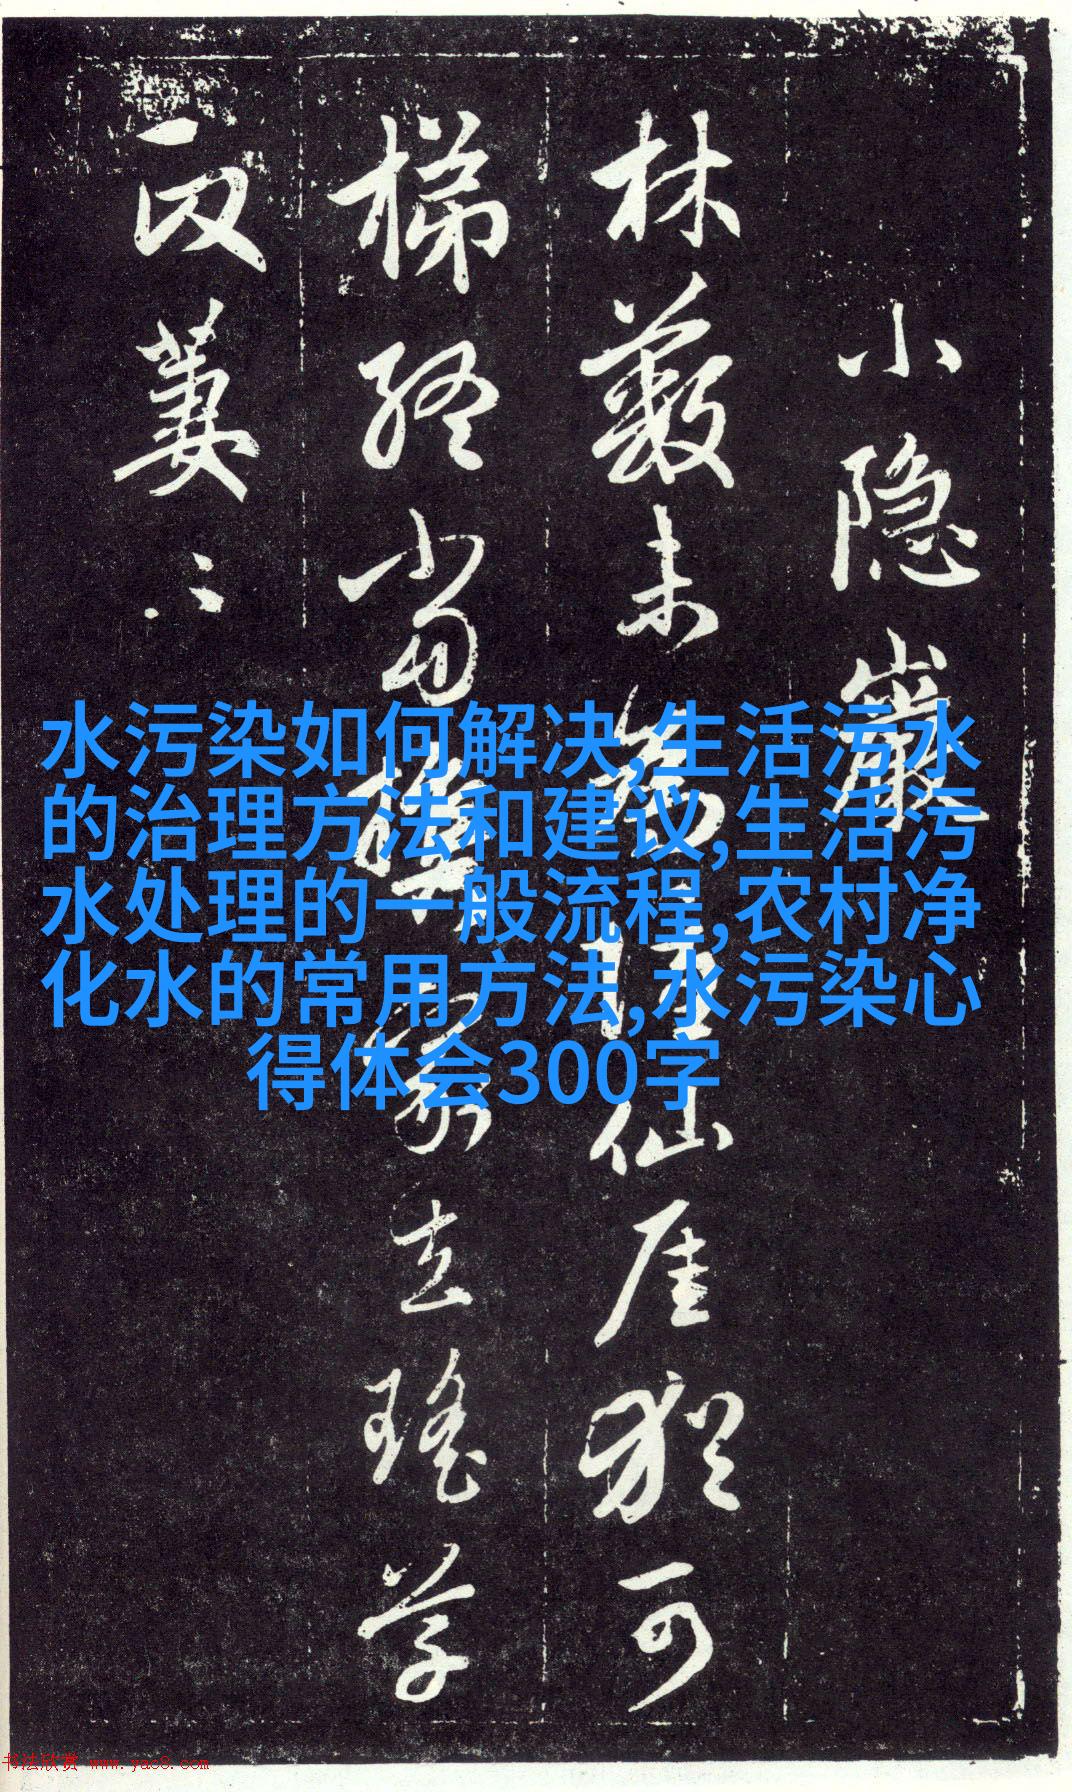 小隐岩
林薮未
仙崖犹可
梯
当
家立瑶学
萋〻
水污染如何解决,生活污水
的治理方法和建议,生活污
水处理的一般流程,农村净
化水的常用方法,水污染心
得体会300字
书法欣赏 www.yac8.com